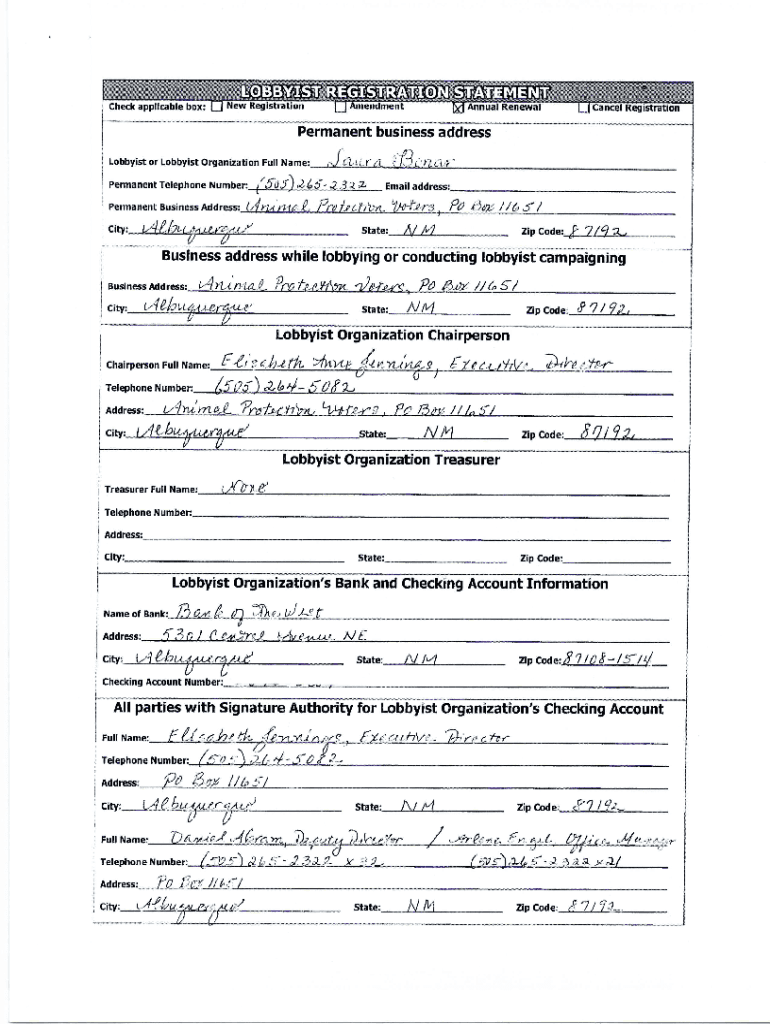 LOBBYIST REGISTRATION STATEMENT
Check applicable box: New Registration Amendment Annual Renewal Cancel Registration
Permanent business address
Lobbyist or Lobbyist Organization Full Name: Laura Bonar
Permanent Telephone Number: (505) 265-2322 Email address:
Permanent Business Address: Animal Protection Voters, PO Box 11651
City: Albuquerque State: NM Zip Code: 87192
Business address while lobbying or conducting lobbyist campaigning
Business Address: Animal Protection Voters, PO Box 11651
City: Albuquerque State: NM Zip Code: 87192
Lobbyist Organization Chairperson
Chairperson Full Name: Elisabeth Anne Jennings, Executive Director
Telephone Number: (505) 264-5082
Address: Animal Protection Voters, PO Box 11651
City: Albuquerque State: NM Zip Code: 87192
Lobbyist Organization Treasurer
Treasurer Full Name: None
Telephone Number:
Address:
City: State: Zip Code:
Lobbyist Organization's Bank and Checking Account Information
Name of Bank: Bank of The West
Address: 5301 Central Avenue NE
City: Albuquerque State: NM Zip Code: 87108-1514
Checking Account Number:
All parties with Signature Authority for Lobbyist Organization's Checking Account
Full Name: Elisabeth Jennings, Executive Director
Telephone Number: (505) 264-5082
Address: PO Box 11651
City: Albuquerque State: NM Zip Code: 87192
Full Name: Daniel Abram, Deputy Director / Arlene Engel Office Manager
Telephone Number: (505) 265-2322 x 32 (505) 265-2322 x21
Address: PO Box 11651
City: Albuquerque State: NM Zip Code: 87192